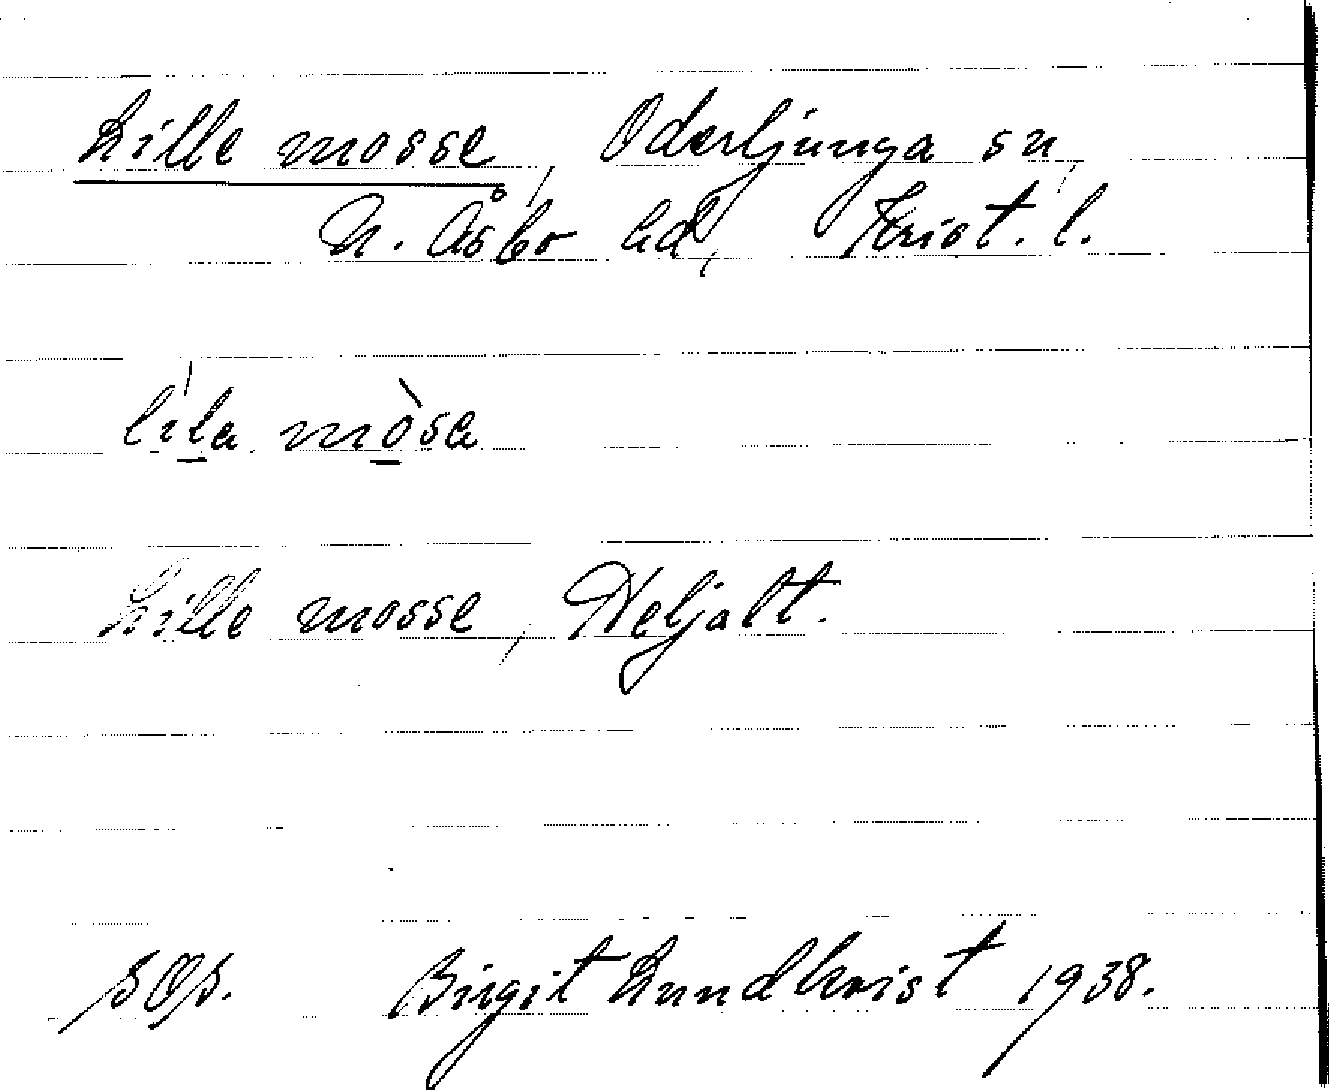 Lille mosse, Oderljunga sn,
N. Åsbo hd, Krist. l.
lila mòsa
Lille mosse, Heljalt.
Birgit Lundkvist 1938.